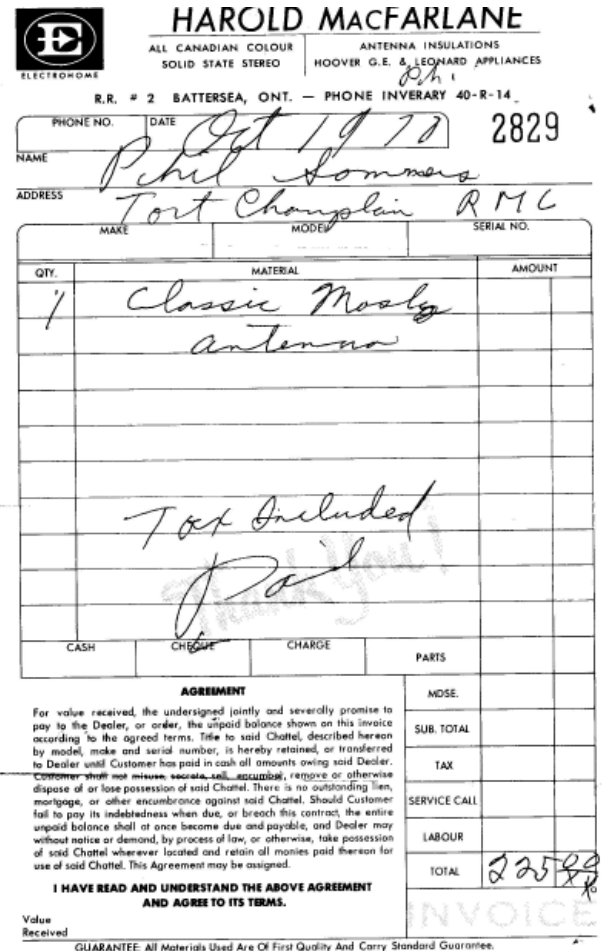 HAROLD MACFARLANE
E
ELECTROHOME
ALL CANADIAN COLOUR
SOLID STATE STEREO
ANTENNA INSULATIONS
HOOVER G.E. & LEONARD APPLIANCES
R.R. # 2 BATTERSEA, ONT. — PHONE INVERARY 40-R-14
PHONE NO.
DATE Oct 1978
2829
NAME Phil Sommers
ADDRESS Tort Champlain RMC
MAKE MODEL SERIAL NO.
QTY. MATERIAL AMOUNT
1 Classic Mosley
antenna
Tax Included
Paid
Thank You!
CASH CHEQUE CHARGE
PARTS
MDSE.
SUB. TOTAL
TAX
SERVICE CALL
LABOUR
TOTAL 225
AGREEMENT
For value received, the undersigned jointly and severally promise to
pay to the Dealer, or order, the unpaid balance shown on this invoice
according to the agreed terms. Title to said Chattel, described hereon
by model, make and serial number, is hereby retained, or transferred
to Dealer until Customer has paid in cash all amounts owing said Dealer.
Customer shall not misuse, secrete, sell, encumber, remove or otherwise
dispose of or lose possession of said Chattel. There is no outstanding lien,
mortgage, or other encumbrance against said Chattel. Should Customer
fail to pay its indebtedness when due, or breach this contract, the entire
unpaid balance shall at once become due and payable, and Dealer may
without notice or demand, by process of law, or otherwise, take possession
of said Chattel wherever located and retain all monies paid thereon for
use of said Chattel. This Agreement may be assigned.
I HAVE READ AND UNDERSTAND THE ABOVE AGREEMENT
AND AGREE TO ITS TERMS.
INVOICE
Value
Received
GUARANTEE: All Materials Used Are Of First Quality And Carry Standard Guarantee.